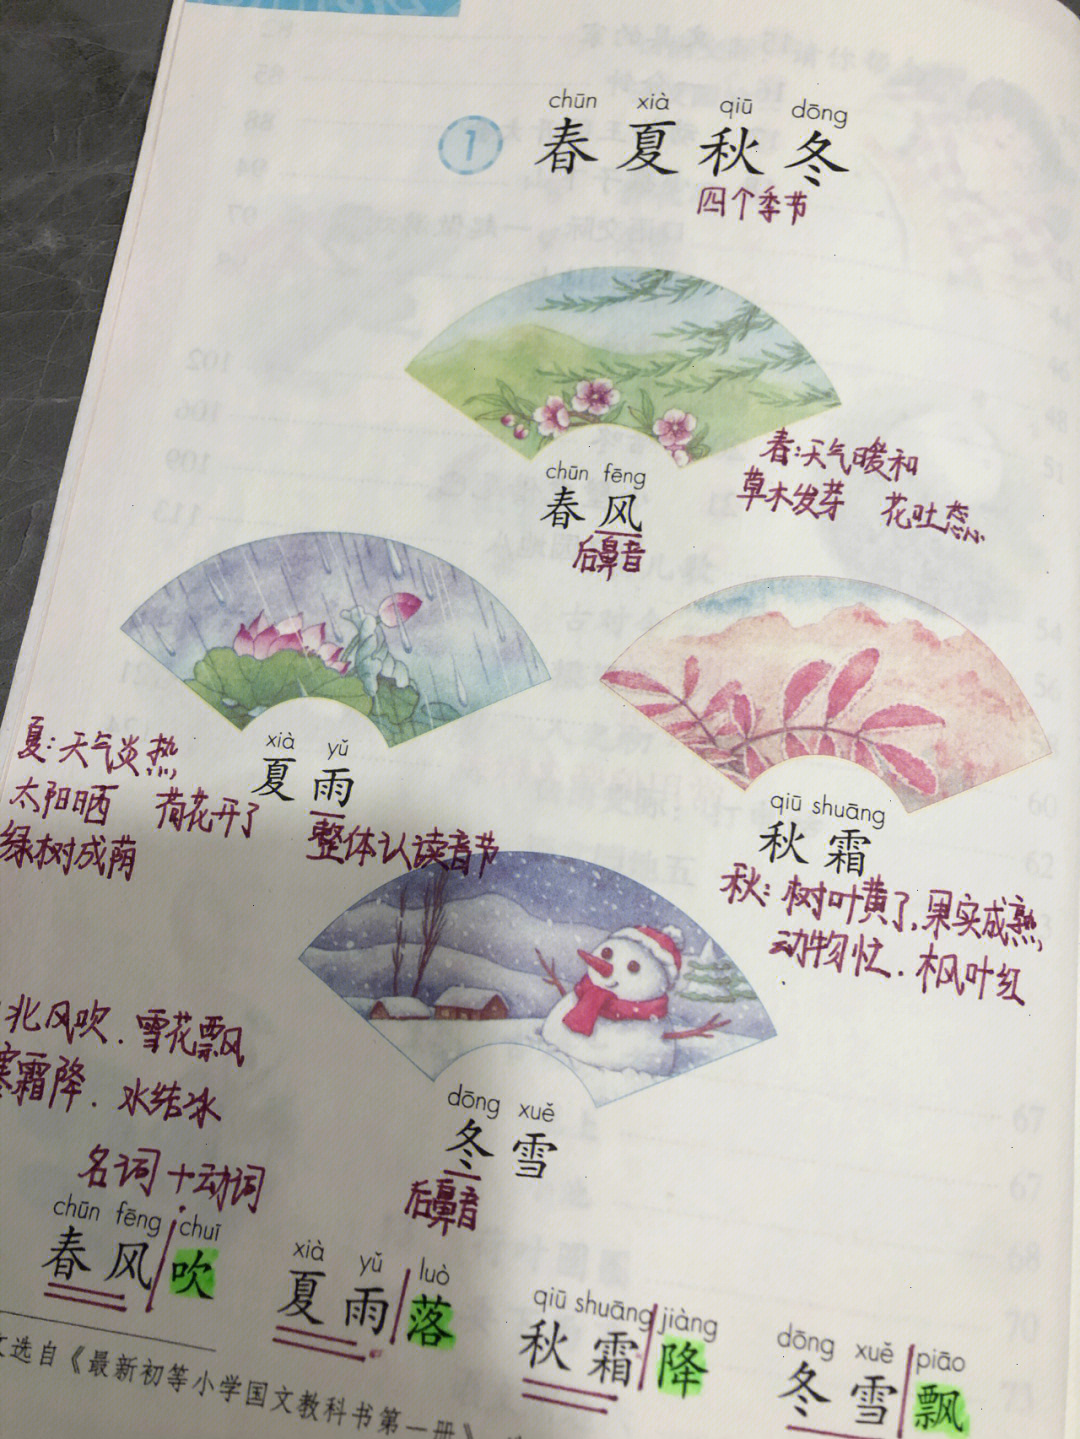 chūn xià qiū dōng
1 春夏秋冬
四个季节
春:天气暖和
草木发芽 花吐蕊
chūn fēng
春风
后鼻音
xià yǔ
夏雨
整体认读音节
夏:天气炎热
太阳晒 荷花开了
绿树成荫
qiū shuāng
秋霜
秋:树叶黄了,果实成熟,
动物忙.枫叶红
北风吹.雪花飘
寒霜降.水结冰
dōng xuě
冬雪
后鼻音
名词+动词
chūn fēng chuī
春风吹
xià yǔ luò
夏雨落
qiū shuāng jiàng
秋霜降
dōng xuě piāo
冬雪飘
选自《最新初等小学国文教科书第一册》